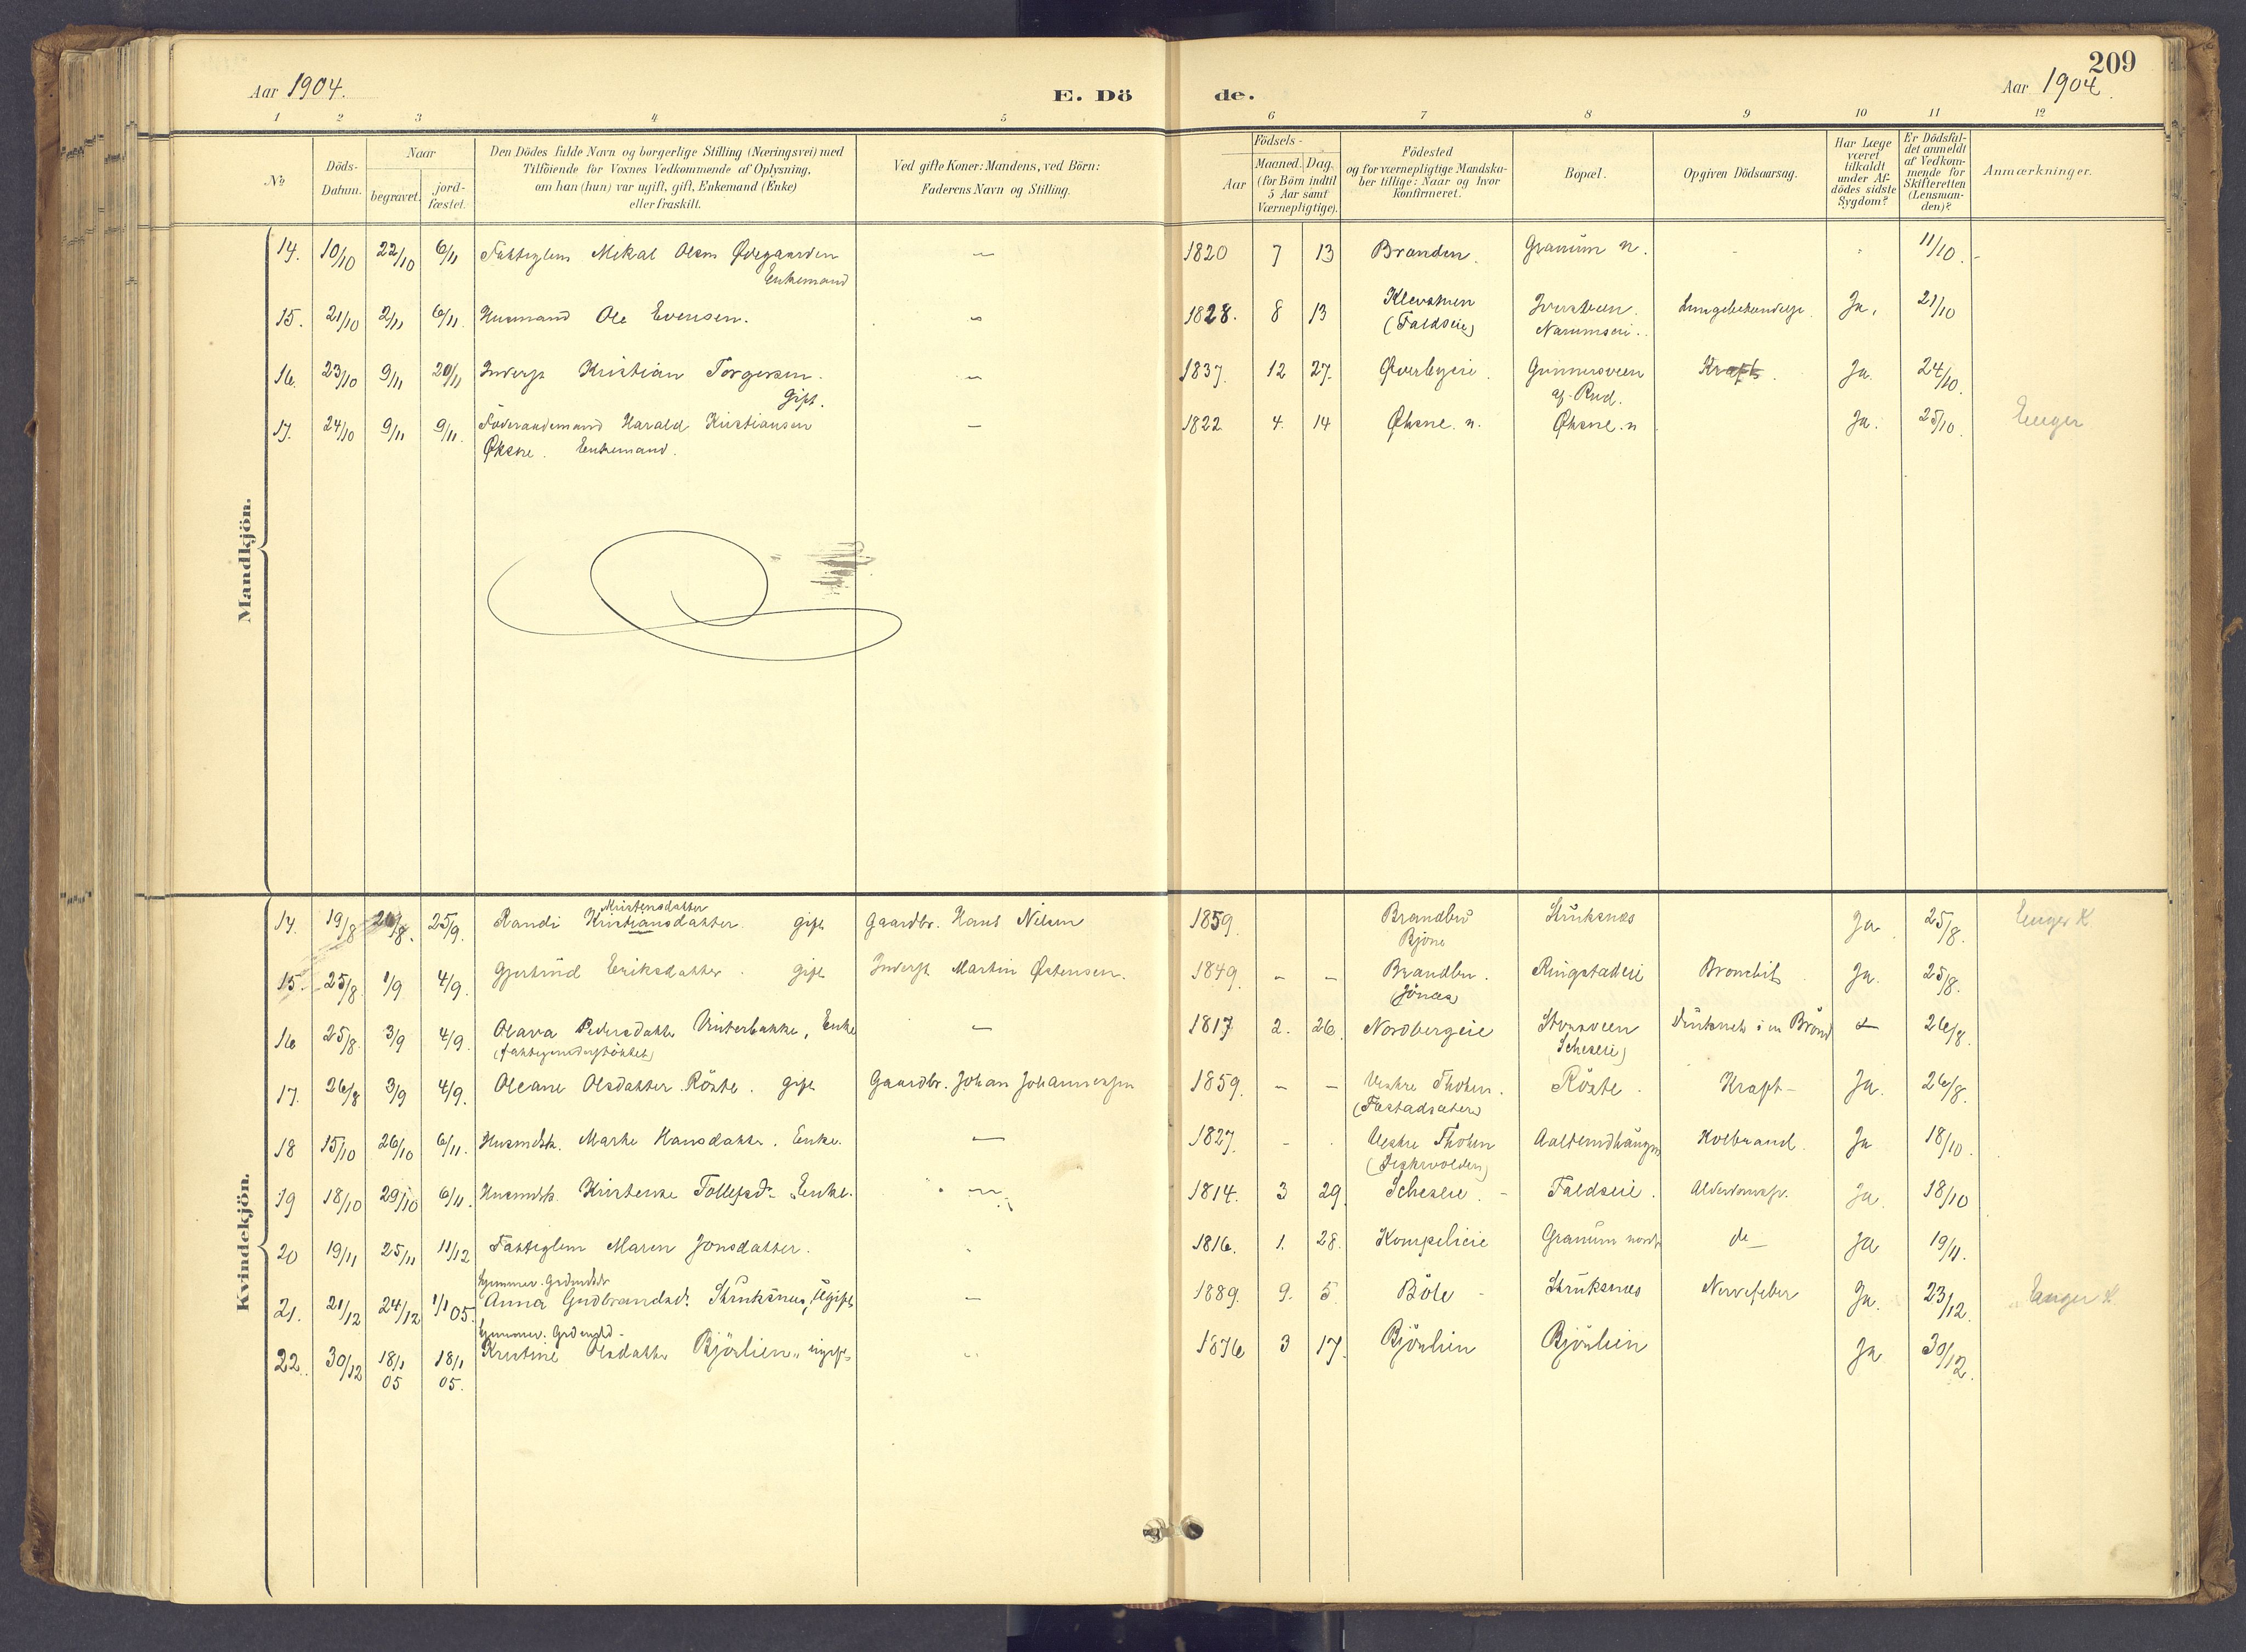 209
Aar 1904.
E. Dö
de.
Aar 1904.
1 2 3 4 5 6 7 8 9 10 11 12
No
Döds-Datum.
Naar
begravet.
jord-fæstet.
Den Dödes fulde Navn og borgerlige Stilling (Næringsvei) med
Tilföiende for Voxnes Vedkommende af Oplysning,
om han (hun) var ugift, gift, Enkemand (Enke)
eller fraskilt.
Ved gifte Koner: Mandens, ved Börn:
Faderens Navn og Stilling.
Födsels-
Aar
Maaned. Dag.
(for Börn indtil
5 Aar samt
Værnepligtige).
Födested
og for værnepligtige Mandska-
ber tillige: Naar og hvor
konfirmeret.
Bopæl.
Opgiven Dödsaarsag.
Har Læge
været
tilkaldt
under Af-
dödes sidste
Sygdom?
Er Dödsfal-
det anmeldt
af Vedkom-
mende for
Skifteretten
(Lensman-
den)?
Anmærkninger.
Mandkjön.
14. 10/10 22/10 6/11 Fattiglem Mikal Olsen Ødegaarden — 1820 7 13 Branden. Granum n. - - 11/10.
Enkemand
15. 21/10 2/11 6/11. Husmand Ole Evensen. — 1828. 8 13 Klevstuen Lungebetændelse. Ja, 21/10
(Faldseie) Narumsei..
16. 23/10 9/11 20/11 Inderst Kristian Torgersen. — 1837. 12 27. Øverbyeie. Gunnersveen Kræft. Ja. 24/10.
Gift. af Rud.
17. 24/10 9/11 9/11. Föderaadsmand Harald Kristiansen — 1822 4. 14 Øksne. n. Øksne. n Ja. 25/10. Enger
Øksne. Enkemand.
Kvindekjön.
Kristensdatter
14. 19/8 25/9. Randi Kristiansdatter. gift Gaardbr. Hans Nilsen 1859. Brandbu Struksnes Ja. 25/8. Enger K
Bjone
15. 25/8. 1/9 4/9. Gjertrud Eriksdatter. gift Inderst Martin Østensen. 1849. — — Brandbu. Ringstadeie Bronchit. Ja. 25/8.
16 25/8. 3/9 4/9. Olava Pedersdatter Vinterbakke, Enke — 1817 2. 26. Nordbergeie Druknet i en Brönd 26/8.
17. 26/8 3/9 4/9. Oleane Olsdatter Röste. gift Gaardbr. Johan Johannessen 1859. — — Vestre Thoten. Röste. Kræft— Ja. 26/8.
18 15/10 26/10 6/11. Husmdsk. Marte Hansdatter. Enke. — 1827. - . Vestre Thoten Koldbrand. Ja 18/10.
19 18/10 29/10 6/11. Husmdsk. Kristense Tollefsdr. Enke. — 1814. 3 29. Scheslie. - Faldseie. Alderdomssv. Ja. 18/10
20 19/11 25/11 11/12 Fattiglem Maren Jonsdatter. . 1816. 1. 28. Kompelieie Granum nordr. do— Ja 19/11.
21. 21/12 24/12 1/1 05. Anna Gudbrandsd. Struksnes, Ugift — 1889. 9. 5. Böle - Struksnes Nervefeber Ja. 23/12. Enger K
22. 30/12 18/1 05 18/1 05. Kristine Olsdatter Bjørlien. ugift — 1876 3 17. Bjørlien Bjørlien Ja 30/12.